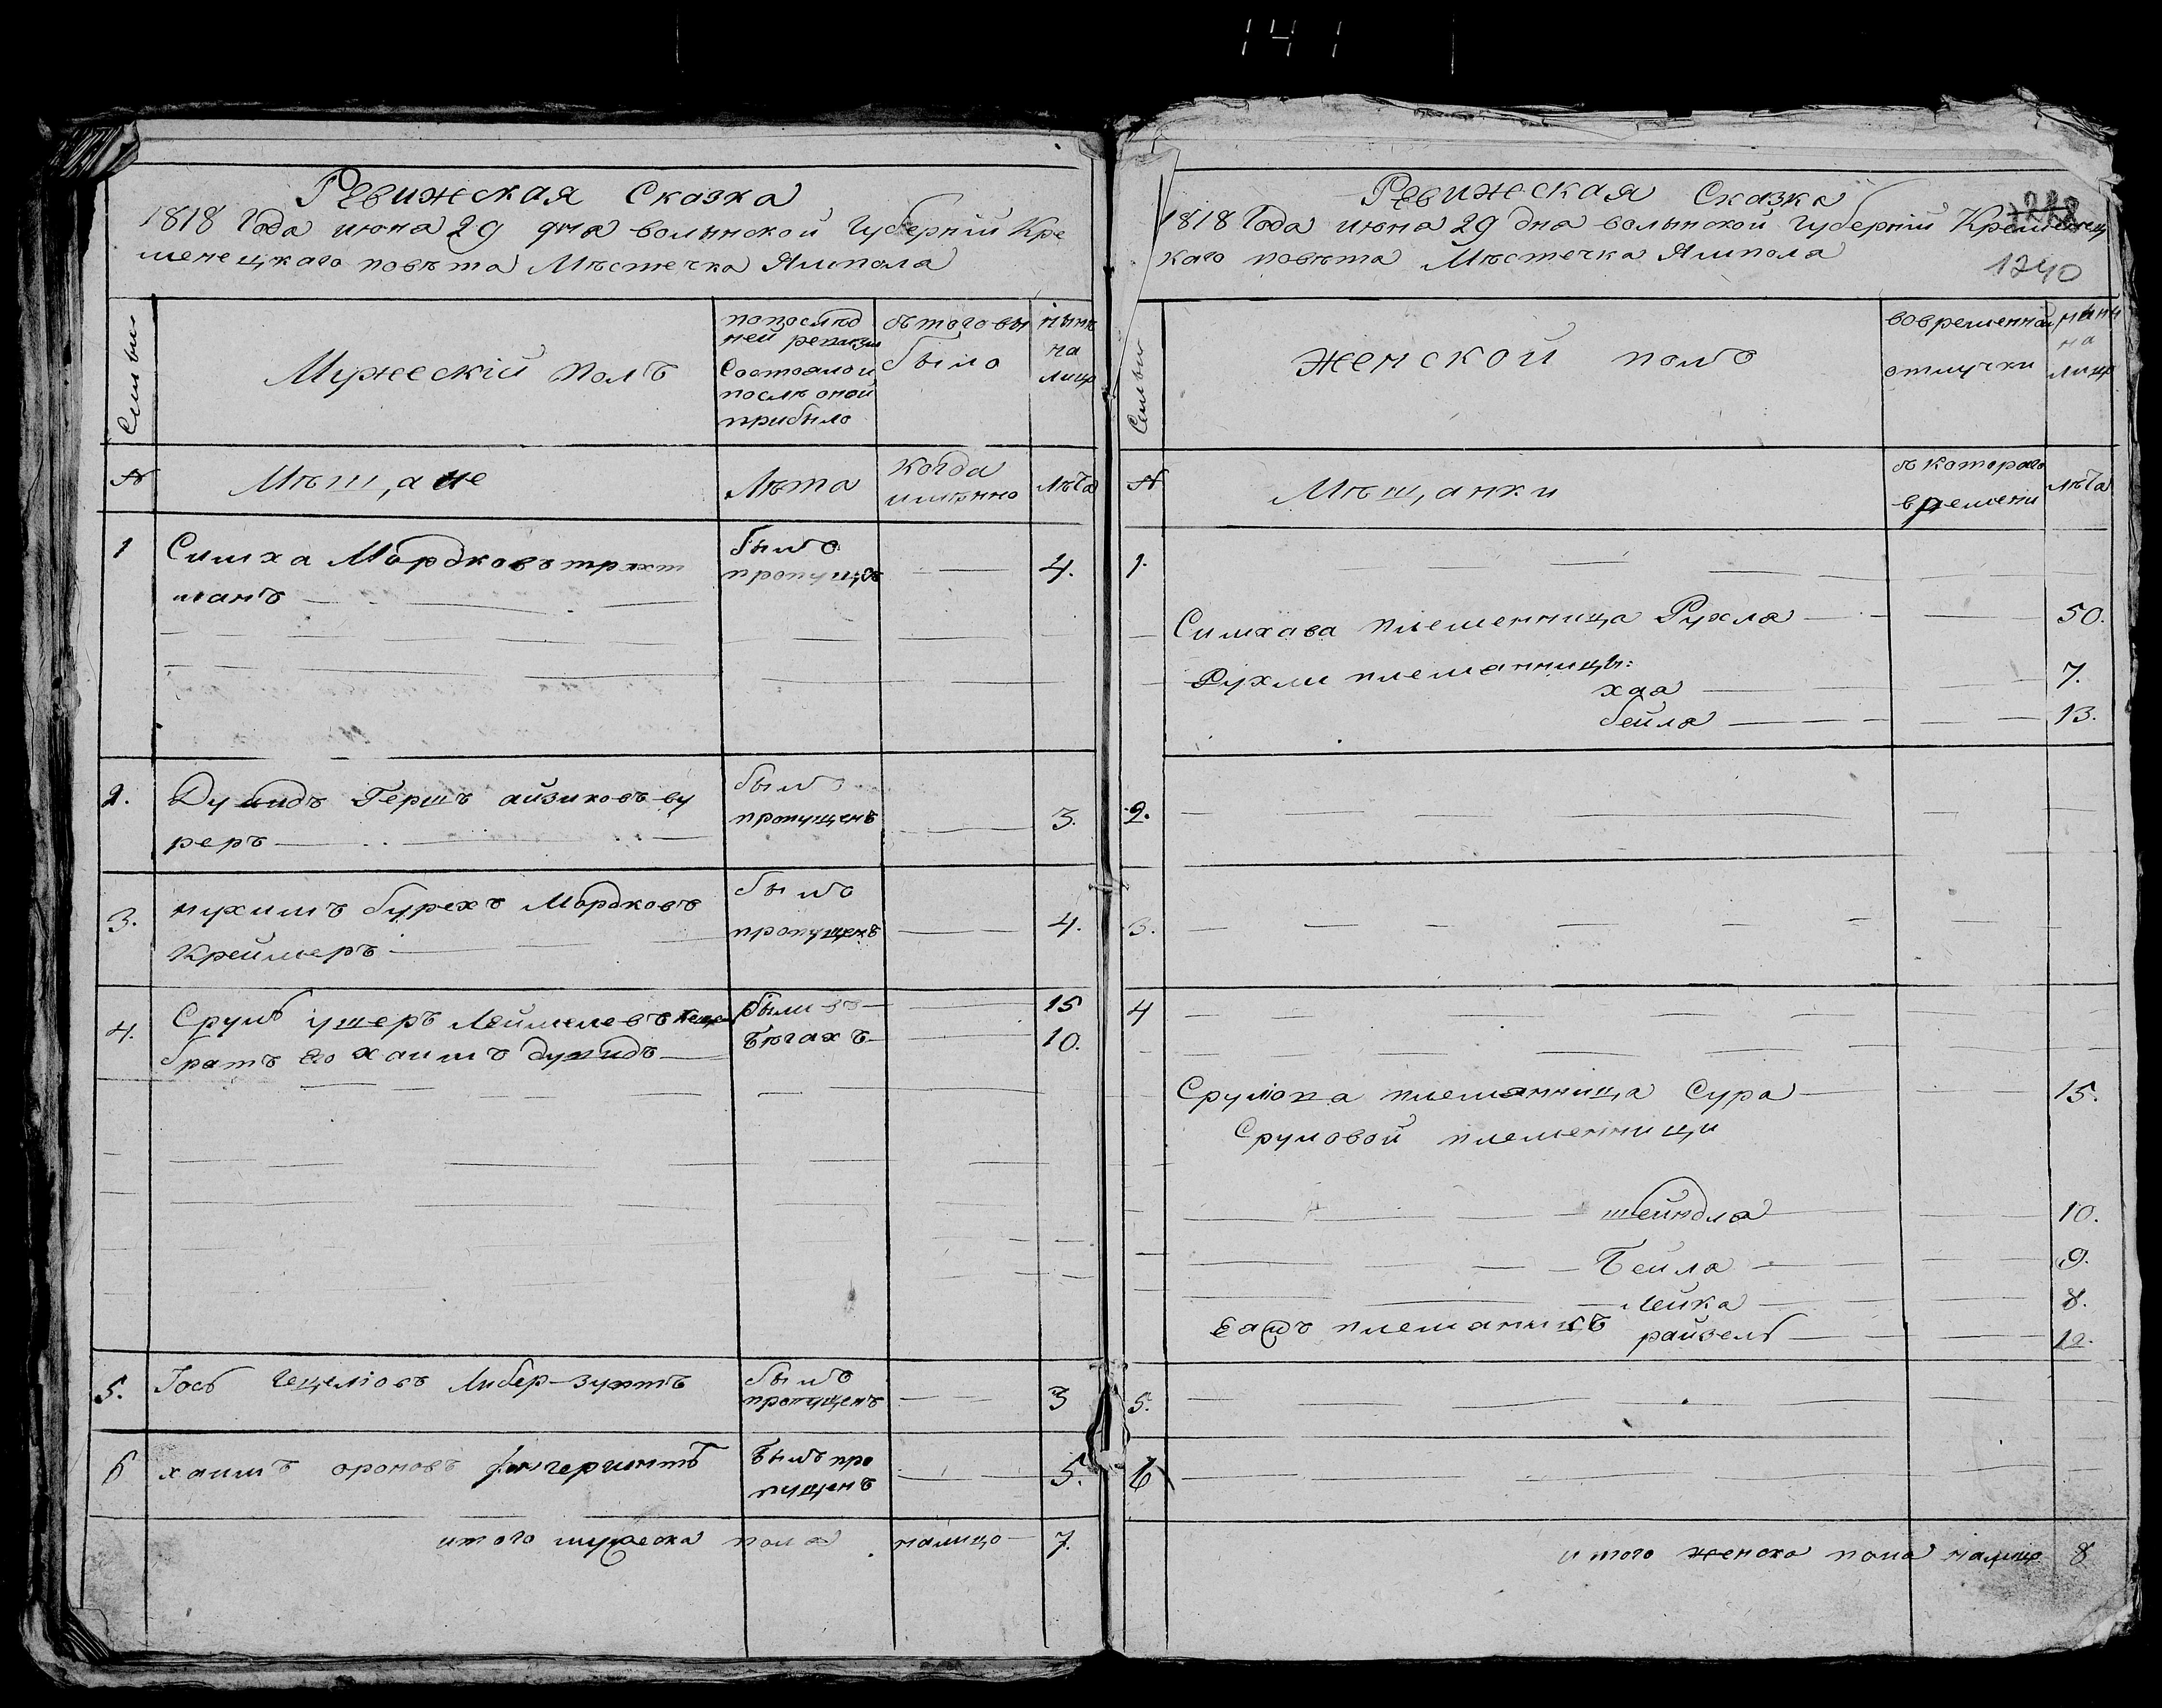 141
Ревижская Сказка
1818 Года июня 29 дня волынской Губерній Кре
менецкаго повѣта Мѣстечка Ямпола
Семьи
Мужескій полъ
попослѣд
ней ревизіи
Состояло и
послѣ оной
прибыло
было
нынѣ
на
лицо
№
Мѣщане
Лѣта
когда
имянно
лѣта
1
Симха Мордковъ трахт
манъ
былъ
пропущенъ
4.
2.
Дувидъ Гершъ айзиковъ ву
реръ
былъ
пропущенъ
3.
3.
нухимъ бурехъ Мордковъ
Креймеръ
былъ
пропущенъ
4.
4.
Сруль ушеръ Леймелевъ
братъ Его хаимъ дувидъ
были въ
бѣгахъ
15
10.
5.
Іось Гецелювъ Либер-зунтъ
былъ
пропущенъ
3
6
хаимъ ароновъ фингергинтъ
былъ про
пущенъ
5.
итого мужеска пола налицо 7.
Ревижская Сказка
1818 Года июня 29 дня волынской Губерній Кременец
каго повѣта Мѣстечка Ямпола
1240
Семьи
женской полъ
вовременной
отлучки
нынѣ
на
лицо
№
Мѣщанки
съ котораго
времени
лѣта
1.
Симхова племенница Рухля 50.
Рухли племянницы:
хая 7.
бейла 13.
2.
3.
4
Срулюва племянница Сура 15.
Сруловой племенници
шейндля 10.
Бейла 9.
Лейка 8.
племяница райзель 12.
5.
6
итого женска пола налицо 8